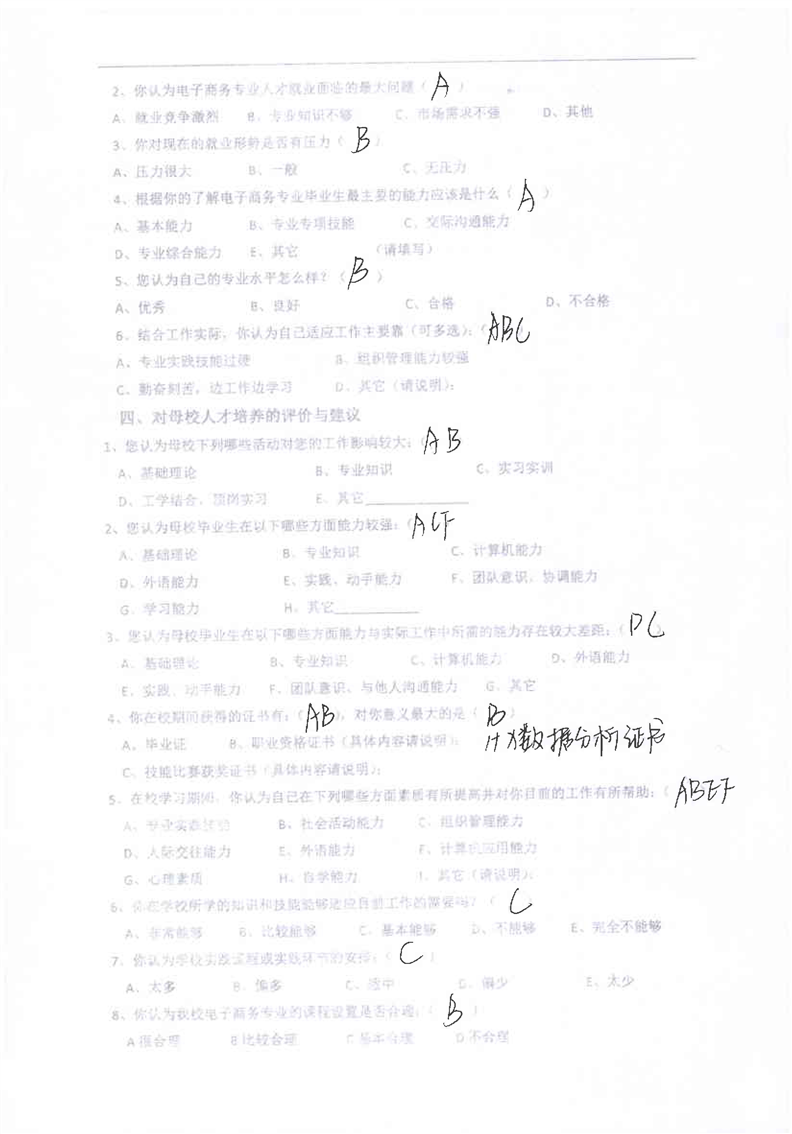 2、你认为电子商务专业人才就业面临的最大问题（ A ）
A、就业竞争激烈 B、专业知识不够 C、市场需求不强 D、其他
3、你对现在的就业形势是否有压力（ B ）
A、压力很大 B、一般 C、无压力
4、根据你的了解电子商务专业毕业生最主要的能力应该是什么（ A ）
A、基本能力 B、专业专项技能 C、交际沟通能力
D、专业综合能力 E、其它 （请填写）
5、您认为自己的专业水平怎么样？（ B ）
A、优秀 B、良好 C、合格 D、不合格
6、结合工作实际，你认为自己适应工作主要靠（可多选）：（ ABC
A、专业实践技能过硬 B、组织管理能力较强
C、勤奋刻苦，边工作边学习 D、其它（请说明）：
四、对母校人才培养的评价与建议
1、您认为母校下列哪些活动对您的工作影响较大：（ AB
A、基础理论 B、专业知识 C、实习实训
D、工学结合、顶岗实习 E、其它
2、您认为母校毕业生在以下哪些方面能力较强：（ ACF
A、基础理论 B、专业知识 C、计算机能力
D、外语能力 E、实践、动手能力 F、团队意识、协调能力
G、学习能力 H、其它
3、您认为母校毕业生在以下哪些方面能力与实际工作中所需的能力存在较大差距：（ DC
A、基础理论 B、专业知识 C、计算机能力 D、外语能力
E、实践、动手能力 F、团队意识、与他人沟通能力 G、其它
4、你在校期间获得的证书有：（ AB ），对你意义最大的是（ B ）
A、毕业证 B、职业资格证书（具体内容请说明）： 1+X数据分析证书
C、技能比赛获奖证书（具体内容请说明）：
5、在校学习期间，你认为自己在下列哪些方面素质有所提高并对你目前的工作有所帮助：（ ABEF
A、专业实践技能 B、社会活动能力 C、组织管理能力
D、人际交往能力 E、外语能力 F、计算机应用能力
G、心理素质 H、自学能力 I、其它（请说明）：
6、你在学校所学的知识和技能能够适应目前工作的需要吗？（ C
A、非常能够 B、比较能够 C、基本能够 D、不能够 E、完全不能够
7、你认为学校实践课程或实践环节的安排：（ C ）
A、太多 B、偏多 C、适中 D、偏少 E、太少
8、你认为我校电子商务专业的课程设置是否合适：（ B ）
A 很合理 B 比较合理 C 基本合理 D 不合理